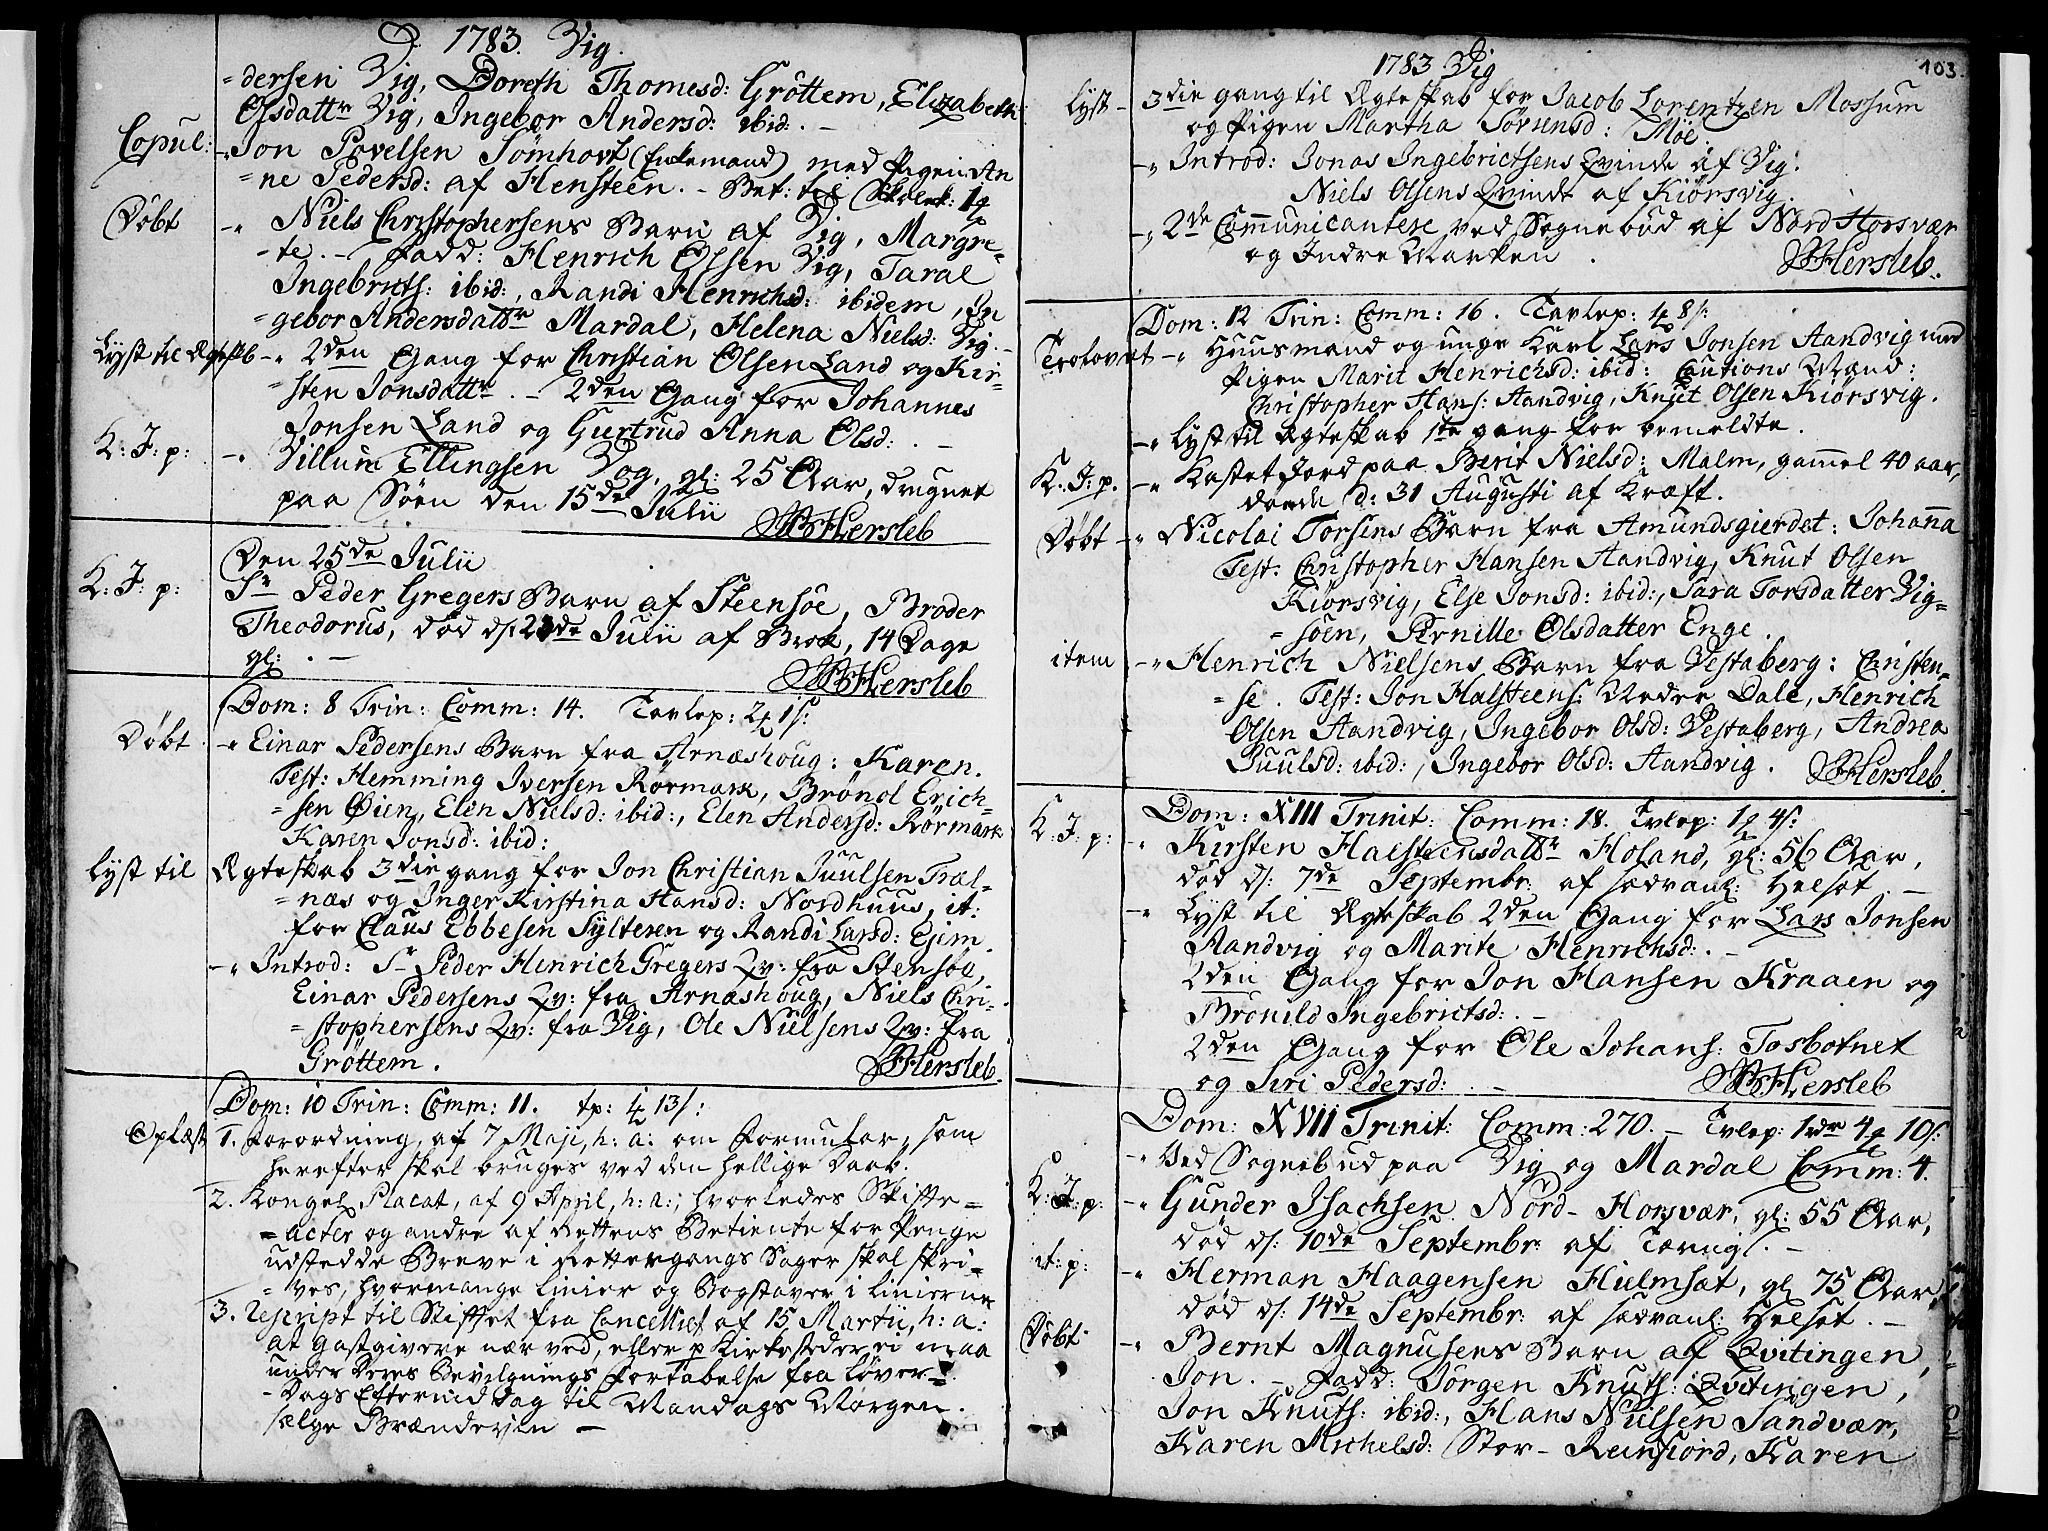 D. 1783. Vig.
=dersen Vig, Doreth Thomesd: Gröttem, Elizabeth
Olsdattr Vig, Ingebor Andersd: ibid: . –
Copul: -„ Jon Povelsen Sömhovt (Enkemand) med Pigen An
=ne Pedersd: af Hensteen. – Bet: til Skolek:
Döbt -„ Niels Christophersens Barn af Vig, Margre=
=te. – Fadd: Henrich Olsen Vig, Taral
Ingebrictß: ibid:, Randi Henrichsd: ibidem, In
=gebor Andersdattr Mardal, Helena Nielsd: Vig. –
Lyst til Ægteskb -„ 2den Gang for Christian Olsen Land og Kir=
=sten Jonsdattr . – 2den Gang for Johannes
Jonsen Land og Gurtrud Anna Olsd: . –
K: J: p: -„ Villum Ellingsen Vog, gl: 25 Aar, drugnet
paa Söen den 15de Julii
Hersleb
Den 25de Julii
K: J: p: Sr Peder Gregers Barn af Steensöe, Broder
Theodorus, död ds: Julii af Brok, 14 Dage
gl: . –
Hersleb
Dom: 8 Trin: Comm: 14. Tavlep: 2 1ß:
Döbt -„ Einar Pedersens Barn fra Arnæshoug: Karen.
Test: Hemming Iversen Rörmark, Brönol Erich=
=sen Öien, Elen Nielsd: ibid:, Elen Andersd: Rörmark
Karen Jonsd: ibid:
Lyst til Ægteskab 3die gang for Jon Christian Juulsen Træl=
=næs og Inger Kirstina Hansd: Nordhuus, it:
for Claus Ebbesen Sylteren og Randi Larsd: Ejim.
-„ Introd: Sr Peder Henrich Gregers Qv: fra Stensöe,
Einar Pedersens Qv: fra Arnæshoug, Niels Chri=
=stophersens Qv: fra Vig, Ole Nielsens Qv: fra
Gröttem.
Hersleb.
Dom: 10 Trin: Comm: 11. tp: 13ß:
Oplæst 1. Forordning, af 7 Maji, h: a: om Formular, som
herefter skal bruges ved den hellige Daab.
2. Kongel. Placat, af 9 April, h: a:, hvorledes Skifte=
=acter og andre af Rettens Betiente for Penge
udstedde Breve i Rettergangs Sager skal skri=
=ves, hvormange Linier og Bogstaver i Linierne
3. Rescript til Stiftet fra Cancelliet af 15 Martii, h: a:
at Gastgivere nær ved, eller p Kirkesteder ei maa
under Deres Bevilgnings Fortabelse fra Löver=
=dags Eftermiddag til Mandags Morgen.
sælge Brændeviin –
103.
1783 Vig
Lyst – 3die gang til Ægteskab for Jacob Lorentzen Mosum
og Pigen Martha Sörensd: Möe.
-„ Introd: Jonas Ingebrictsens Qvinde af Vig.
Niels Olsens Qvinde af Kiörsvig.
-„ 2de Communicantere ved Sognebud af Nord Horsvær
og Indre Marken .
Hersleb.
Dom: 12 Trin: Comm: 16. Tavlep: 8ß:
Trolovet -„ Huusmand og unge Karl Lars Jonsen Aandvig med
Pigen Marit Henrichsd: ibid: Cautions Mænd:
Christopher Hanß: Aandvig, Knut Olsen Kiörsvig.
-„ Lyst til Ægteskab 1te gang for bemeldte.
K: J: p. -„ Kastet Jord paa Berit Nielsd: Malm, gammel 40 aar,
döde d: 31 Augusti af Kræft.
Döbt -„ Nicolai Torsens Barn fra Amundsgierdet: Johanna
Test: Christopher Hansen Aandvig, Knut Olsen
Kiörsvig, Else Jonsd: ibid:, Sara Torsdatter Vig=
=söen, Pernille Olsdatter Enge.
item -„ Henrich Nielsens Barn fra Vestaberg: Christen=
=se. Test: Jon Halsteenß: Nedre Dale, Henrich
Olsen Aandvig, Ingebor Olsd: Vestaberg, Andrea
Juulsd: ibid:, Ingebor Olsd: Aandvig.
Hersleb.
Dom: XIII Trinit: Comm: 18. Tvlep: 1 4ß:
K: J: p: -„ Kirsten Halsteensdattr Holand, gl: 56 Aar,
död ds: 7de Septembr: af sædvanl: Helsot. –
-„ Lyst til Ægteskab 2den Gang for Lars Jonsen
Aandvig og Marite Henrichsd: . –
2den Gang for Jon Hansen Kraaen og
Bronild Ingebrictsd: . –
2den Gang for Ole Johanß: Tosbotnet
og Siri Pedersd: . –
Hersleb
Dom: XVII Trinit: Comm: 270. – Tvlep: 1rdr 4 10ß:
-„ Ved Sognebud paa Vig og Mardal Comm: 4.
K: J: p: -„ Gunder Isachsen Nord-Horsvær, gl: 55 Aar,
död ds: 10de Septembr: af Tæring. –
it: p: -„ Herman Haagensen Hielmsæt, gl 75 Aar,
död ds: 14de Septembr: af sædvanl: Helsot. –
Döbt -„ Bernt Magnusens Barn af Qvitingen,
Jon. – Fadd: Jörgen Knutß: Qvitingen,
Jon Knutß: ibid:, Hans Nielsen Sandvær,
Karen Michelsd: Stor-Reinfiord, Karen